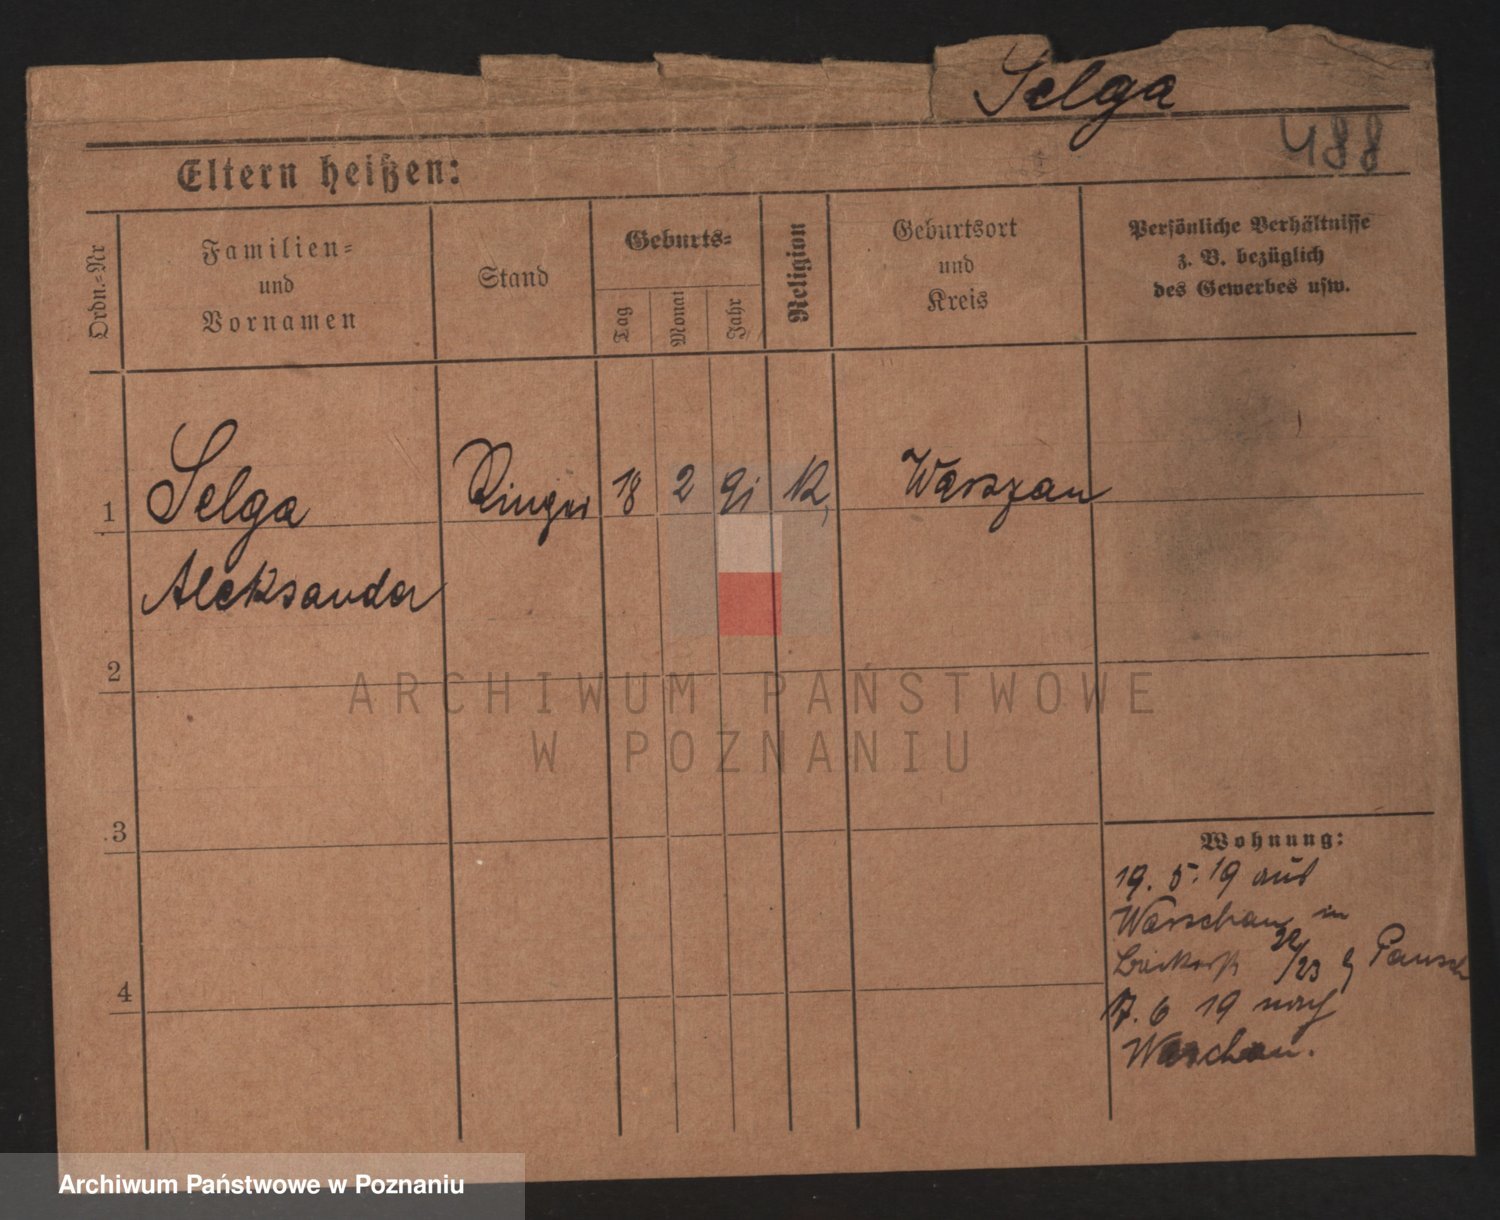 Selga
488
Eltern heißen:
Ordn.-Nr
Familien-
und
Vornamen
Stand
Geburts-
Tag
Monat
Jahr
Religion
Geburtsort
und
Kreis
Persönliche Verhältnisse
z. B. bezüglich
des Gewerbes usw.
1 Selga Ringer 18 2 91 K, Warszau
Aleksander
2
ARCHIWUM PAŃSTWOWE
W POZNANIU
3
4
Wohnung:
19. 5. 19 aus
Warschau in
22/23
17. 6 19 nach
Warschau.
Archiwum Państwowe w Poznaniu